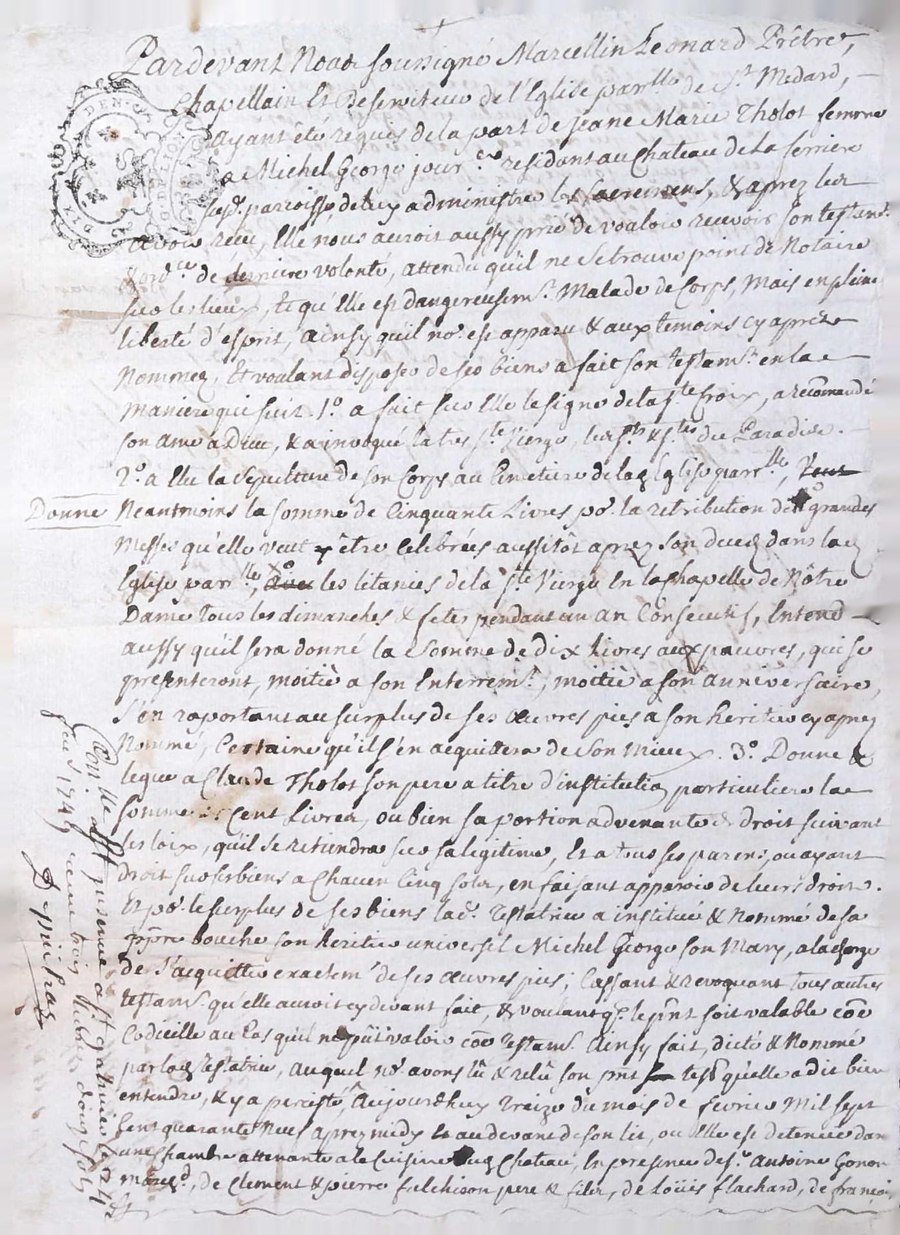 Pardevant Nous soussigné Marcellin Leonard Prêtre,
Chapellain Et Desserviteur de l'Eglise par.lle de St. Medard,
ayant été réquis de la part de jeane Marie Tholot femme
a Michel George jour. residant au Chateau de la ferriere
parroisse de luy administrer les sacremens, & aprez les
avoir reçu, Elle nous auroit aussy prié de vouloir recevoir son testam.t
& ord.ce de derniere volonté, attendu qu'il ne se trouve point de Notaire
sur les lieux, & qu'Elle est dangereusem.t Malade de Corps, mais en pleine
liberté d'esprit, ainsy qu'il no.s est apparu & aux temoins cy aprez
Nommez, Et voulant disposer de ses biens a fait son testam.t en la
Maniere qui suit. 1.o a fait sur Elle le signe de la Ste Croix, a recomandé
son ame a Dieu, & a invoqué la tres Ste Vierge, les Sts & Stes du Paradis.
2.o a Elu la sepulture de son Corps au Cimetiere de lad. Eglise par.lle,
Donne Neantmoins la somme de Cinquante Livres po.r la retribution de grandes
Messes qu'elle veut être Celebrées aussitôt aprez son decez dans lad.
Eglise par.lle, les litanies de la Ste Vierge En la Chapelle de Nôtre
Dame tous les dimanches & fetes pendant un an Consecutif, Entend
aussy qu'il sera donné la somme de Dix Livres aux pauvres, qui se
presenteront, moitié a son Enterrem.t, moitié a son anniversaire,
S'en raportant au surplus de ses œuvres pies a son heritier cy aprez
Nommé, Certaine qu'il s'en acquittera de son mieux. 3.o Donne &
legue a Claude Tholot son pere a titre d'institution particuliere la
somme de Cent Livres, ou bien sa portion advenante de droit suivant
les loix, qu'il se retiendra sur sa legitime, Et a tous ses parens, ou ayant
droit sur ses biens a Chacun Cinq sols, en faisant apparoir de leurs droits.
Et po.r le surplus de ses biens lad. Testatrice a institué & Nommé de sa
ppre bouche son heritier universel Michel George son Mary, a la charge
de s'acquitter exactem.t de ses œuvres pies, Cassant & revoquant tous autres
testam.s qu'elle auroit cy devant fait, & voulant q. le pnt soit valable coe
Codicille au Cas qu'il ne put valoir coe Testam.t Ainsy fait, dicté & Nommé
par lad. Testatrice, auquel no.s avons lû & relû son pnt test. qu'elle a dit bien
entendre, & y a persisté, Aujourd'huy treize du mois de fevrier Mil sept
Cent quarante Neuf aprez midy Et au devant de son lit, ou Elle est detenue dans
une Chambre attenante a la Cuisine dud. Chateau, En presence de s.r Antoine Gonon
march.d, de Clement & pierre fulchiron pere & fils, de Loüis flachard, de françois
Con.lle
a St galmier le 24e
feu. 1749 reçu trois livres douze sols